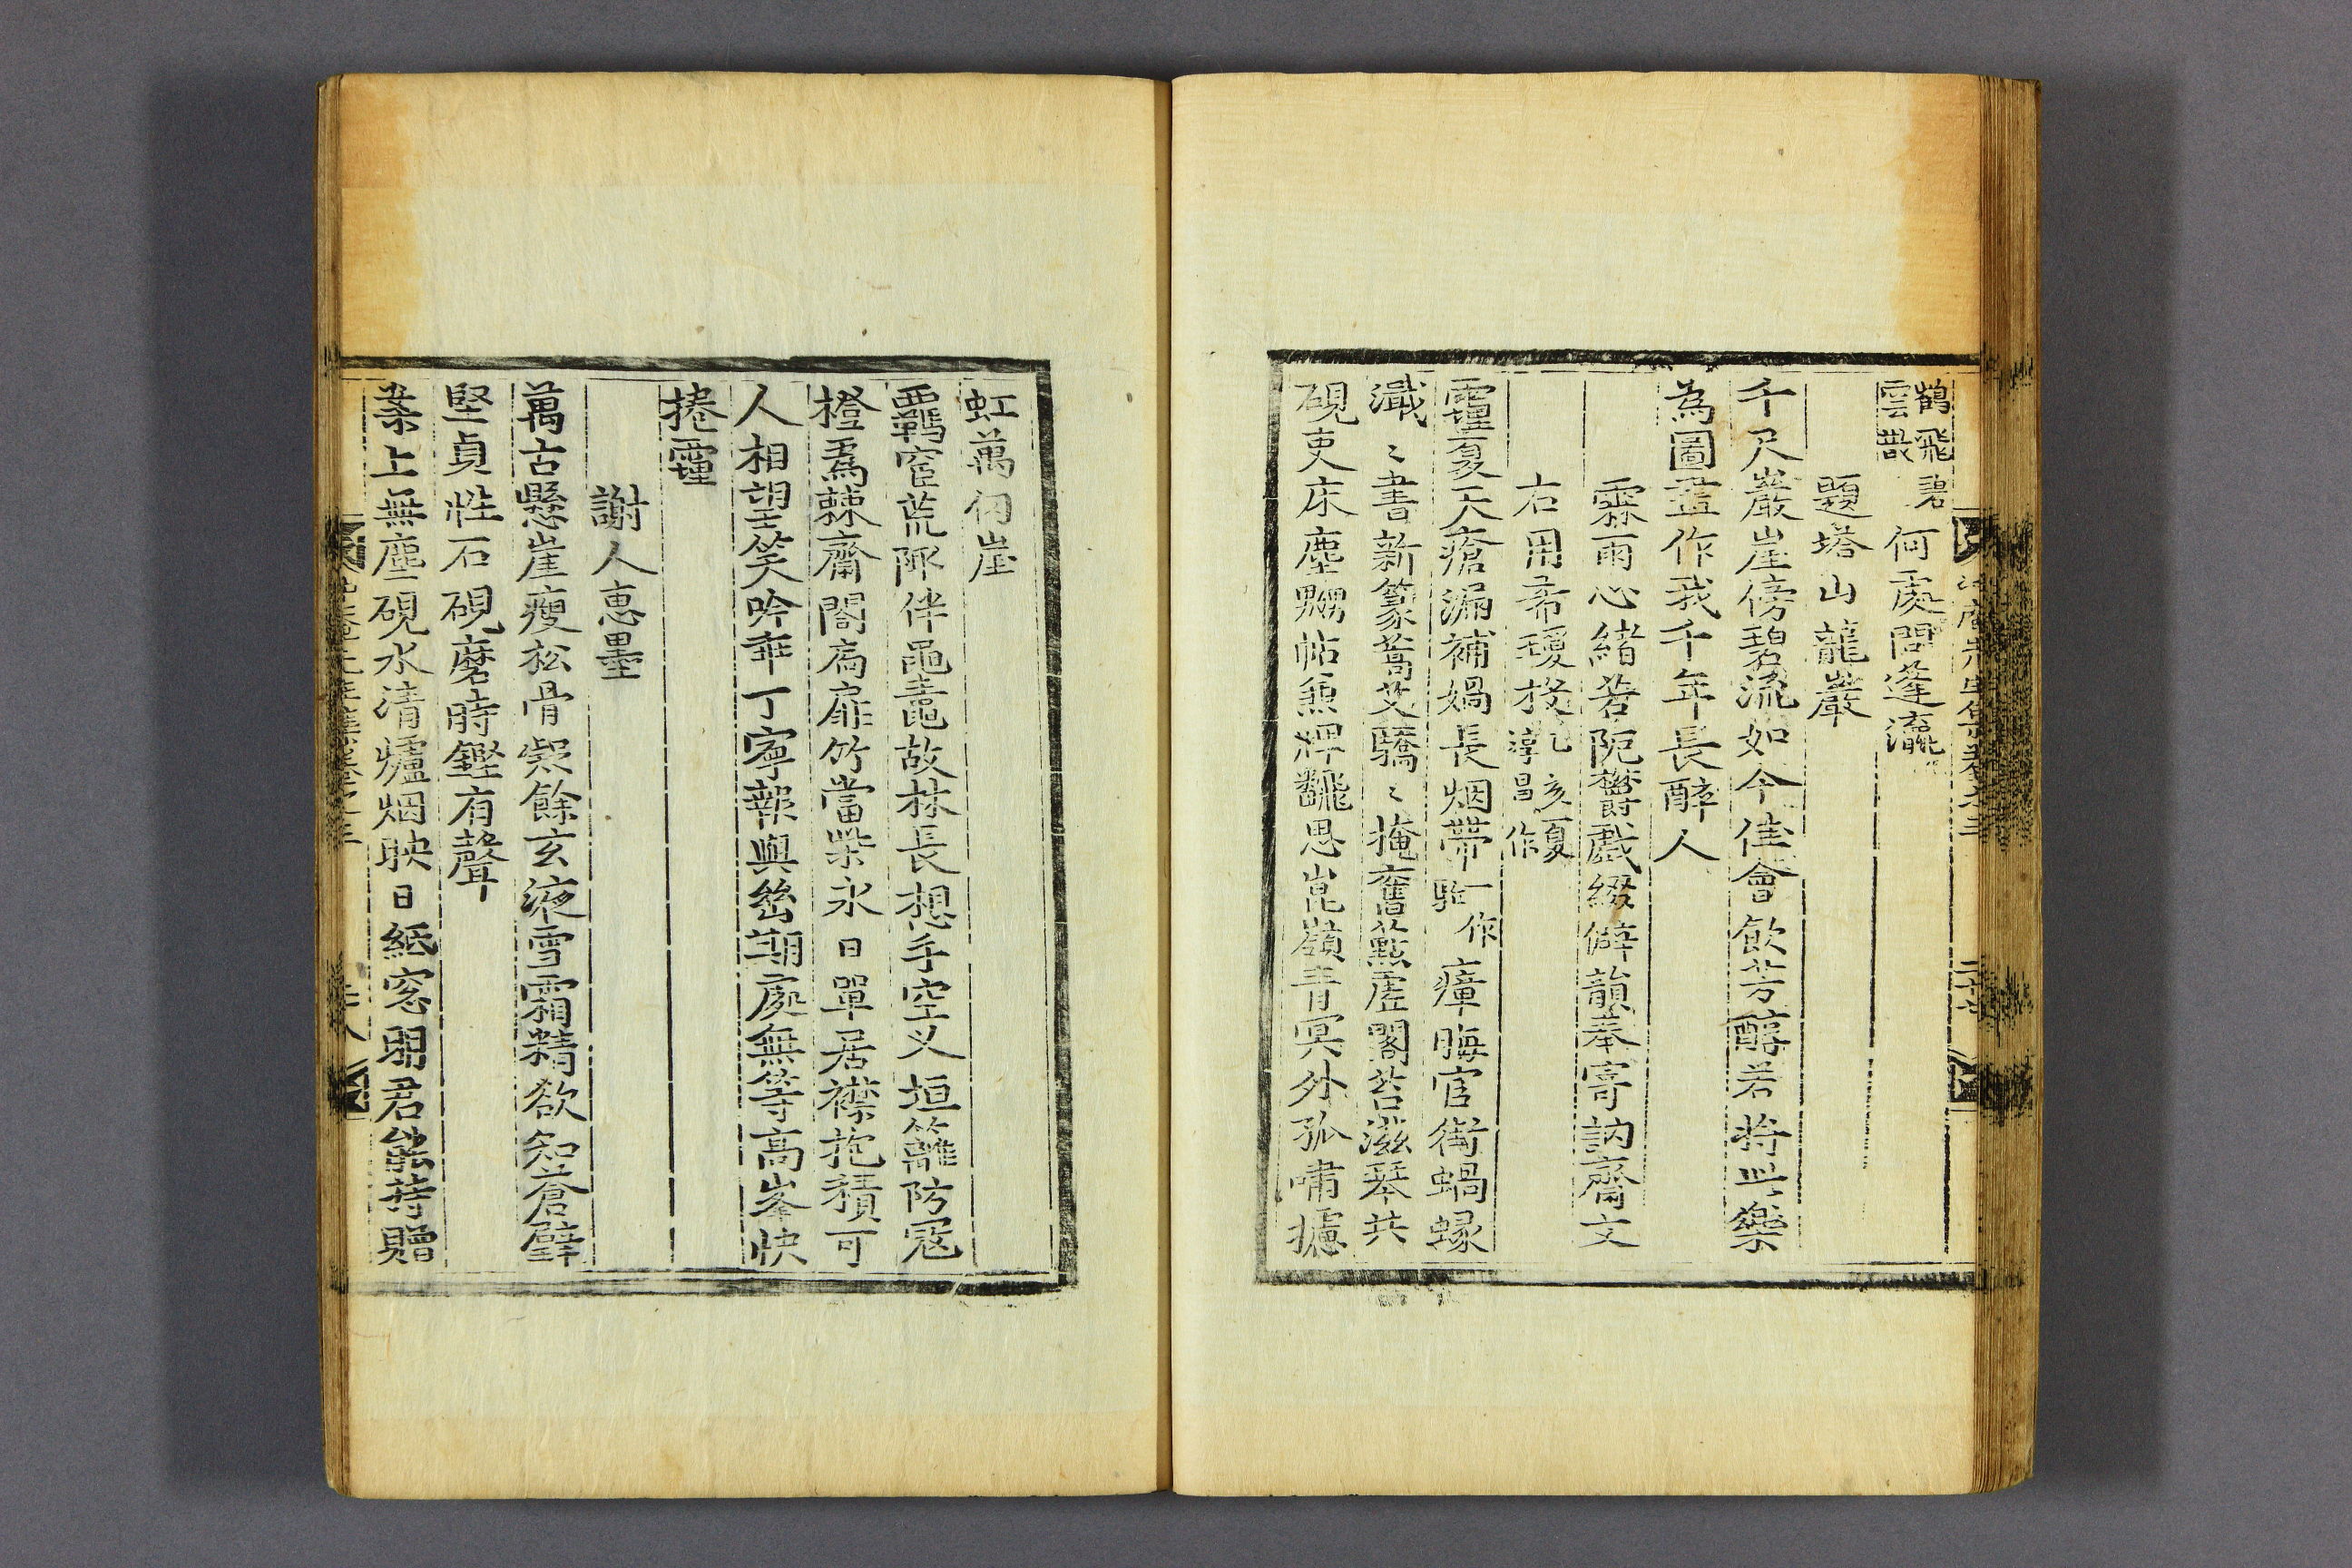 鶴飛碧
雲散 何處問蓬瀛
題塔山龍巖
千尺巖崖傍碧流如今佳會飮芳醇若將此樂
為圖畫作我千年長醉人
霖雨心緖若陁欝戱綴僻韻奉寄訥齋文
右用希瑗投 乹亥夏
淳昌作
霾夏天瘡漏補媧長烟帶 一作
瘴晦官衙蝸蝝
瀸〻書新篆蒿艾驕〻掩舊䕷虛閣苔滋琴共
硯吏床塵 帖兼 飜思崑嶺靑冥外孤嘯攄
虹萬仞崖
羈窂荒陬伴黽䵷故林長想手空义垣籬防冦
橙爲棘齋閤扃扉竹當柴永日單居襟抱積可
人相望笑吟乖丁寧報與幽期處無等高峯快
捲霾
謝人惠墨
萬古懸崖瘦松骨㷇餘玄液雪霜精欲知蒼壁
堅貞性石硯磨時鏗有聲
案上無塵硯水淸爐烟映日紙窓明君能持贈